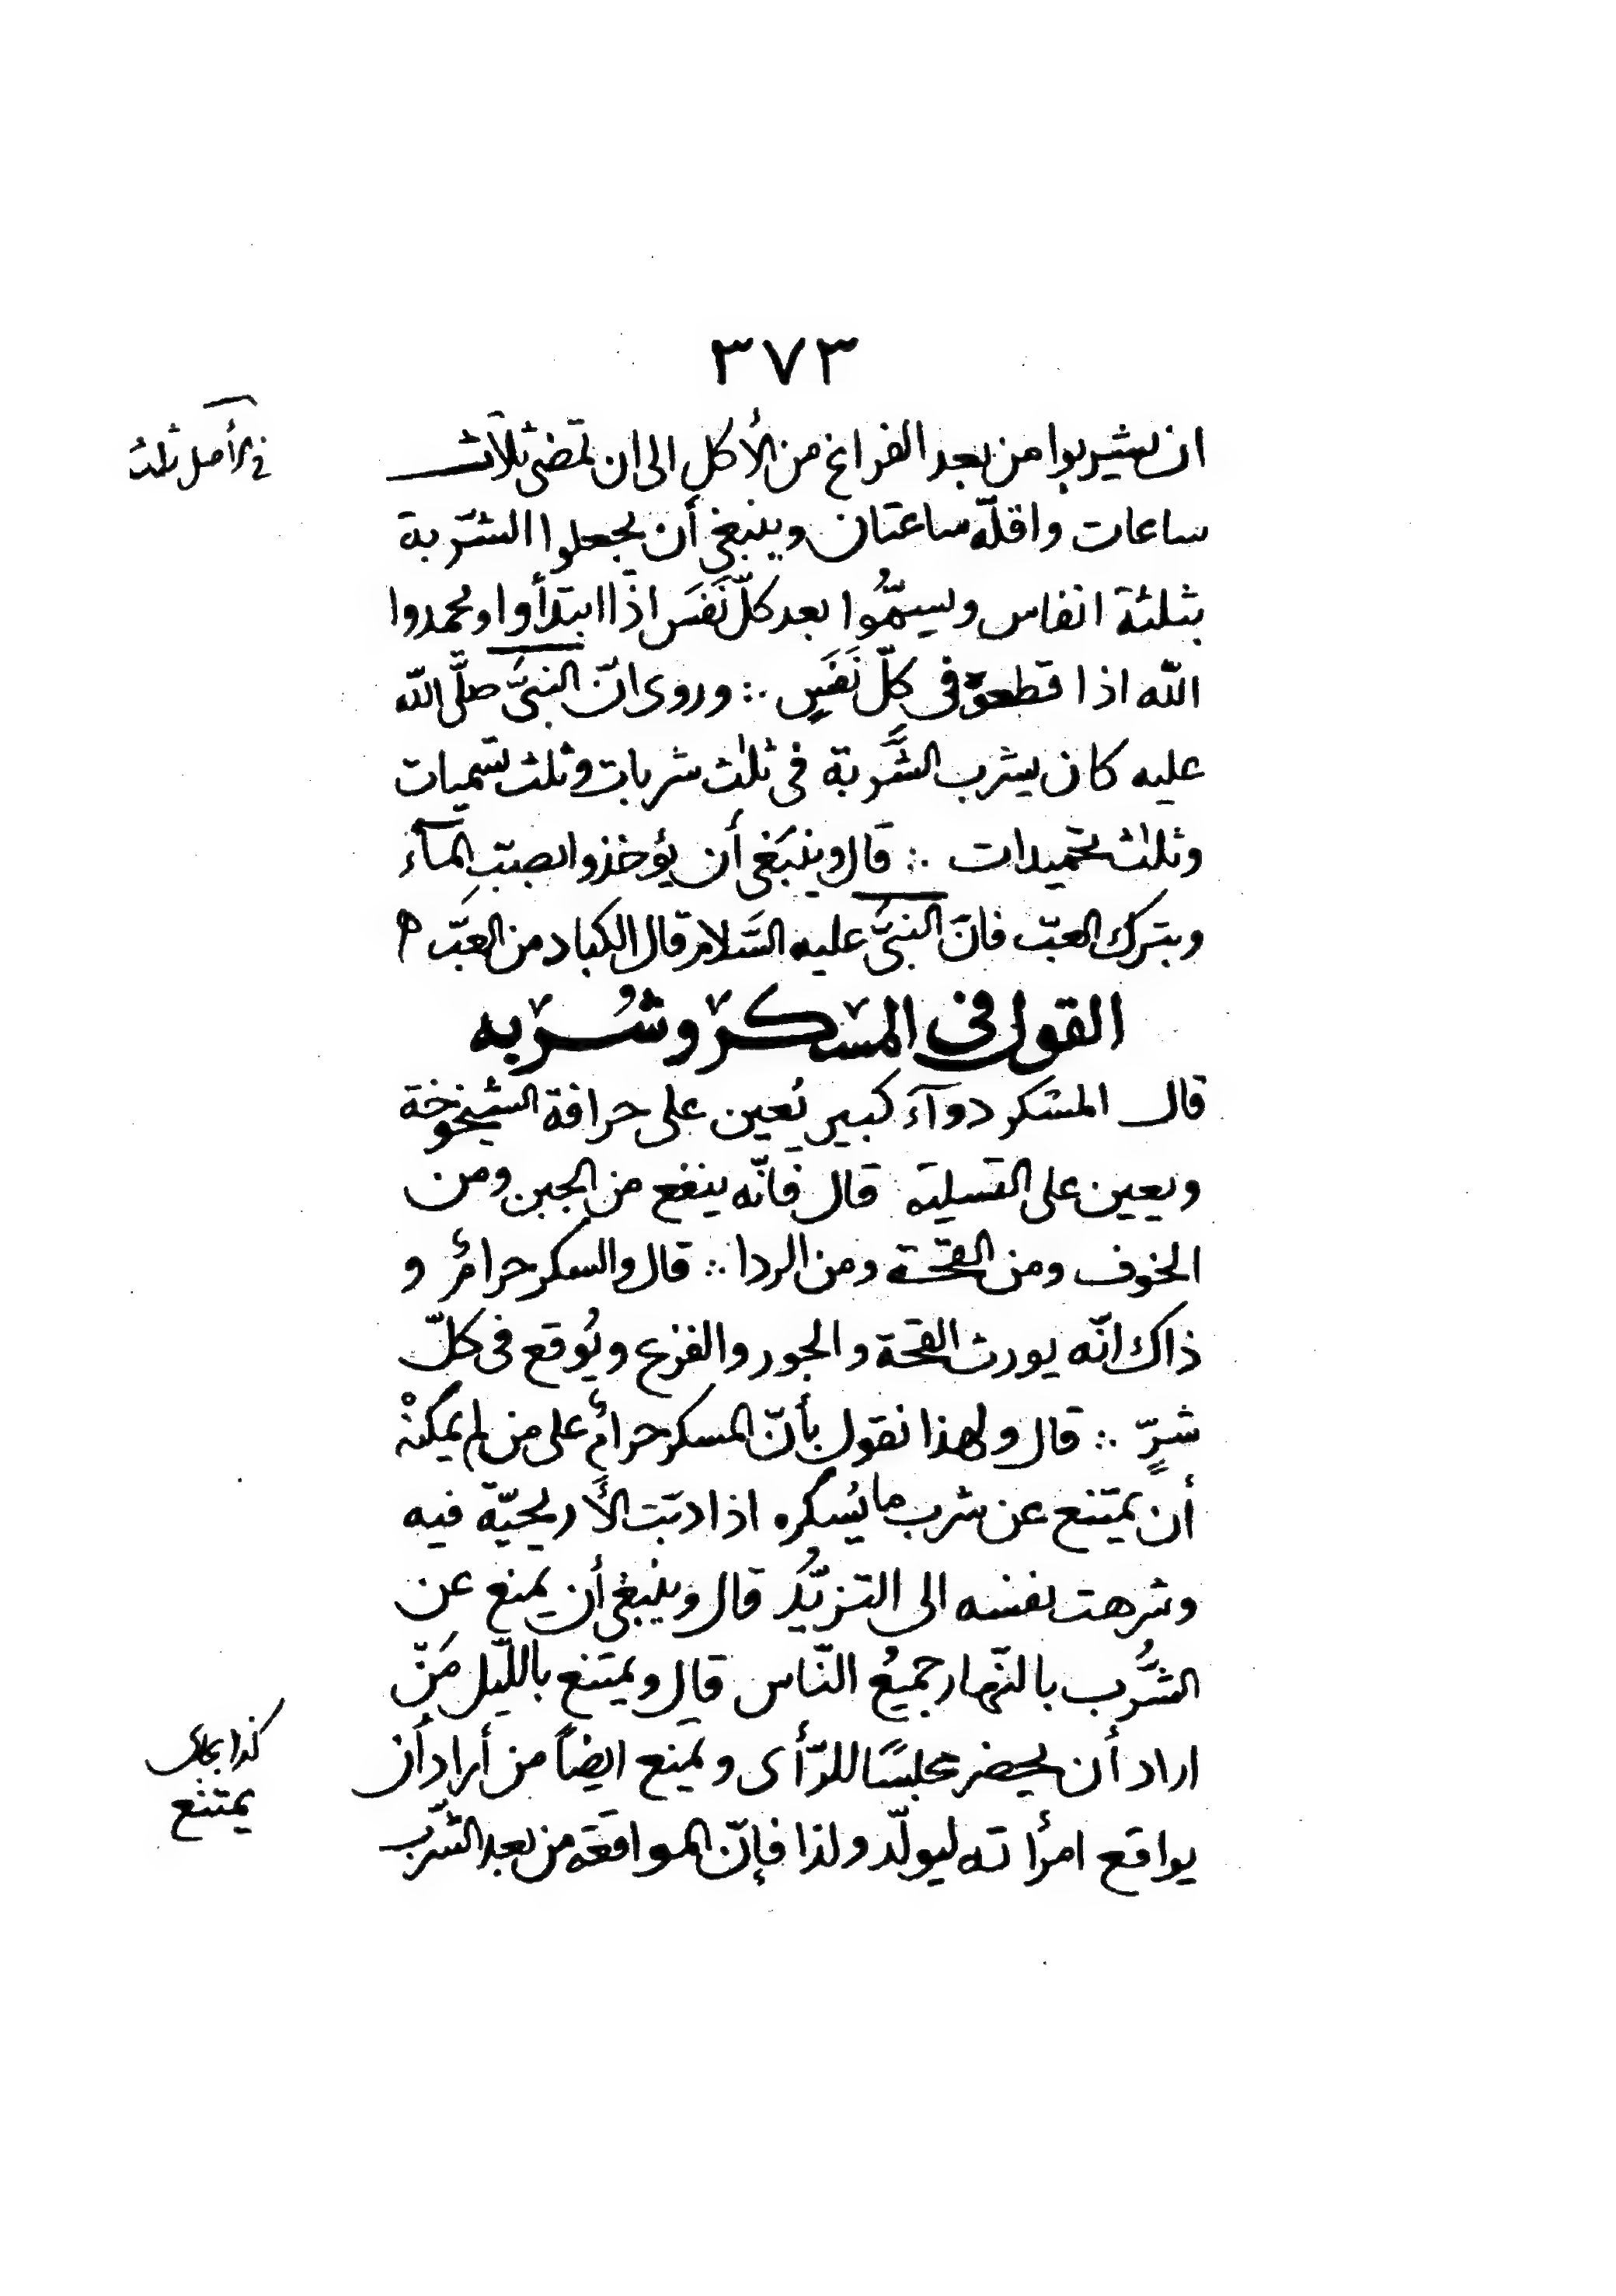 ٣٧٣
ان يشربوا من بعد الفراغ من الأكل الى ان تمضى ثلاث
في الأصل ثلث
ساعات واقلّه ساعتان وينبغي أن يجعلوا الشّربة
بثلثة انفاس ويسمُّوا بعد كلّ نَفَس اذا ابتدأوا ويحمدوا
الله اذا قطعوه في كلّ نَفَسٍ ∴ وروى انّ النبىَّ صلَّى الله
عليه كان يشرب الشَّربة فى ثلٰث شربات وثلث تسميات
وثلٰث تحميدات ∴ قال وينبَغى أن يؤخذوا بصبّ المآء
وبترك العبّ فانّ النبىَّ عليه السَّلام قال الكباد من العبّ
القول فى المسكر وشُربه
قال المسكر دوآء كبير يُعين على حرافة الشيخوخة
ويعين على التسلية قال فانّه ينفع من الجبن ومن
الخوف ومن القحة ومن الردا ∴ قال والسكر حرامٌ و
ذاك انّه يورث القحة والجور والفزع ويُوقع فى كلّ
شرٍّ ∴ قال ولهذا نقول بأنّ المسكر حرامٌ على من لم يمكنْه
أن يمتنع عن شرب ما يُسكره اذا دبّت الأريحيّة فيه
وشرهت نفسه الى التزيُّد قال وينبغى أن يمنع عن
الشُّرب بالنّهار جميعُ النّاس قال ويمتنع باللّيل مَنْ
اراد أن يحضر مجلسًا للرّأى ويمنع ايضاً من أراد أن
كذا
يمتنع
يواقع امرأته ليولّد ولذا فإنّ المواقعة من بعد الشّرب